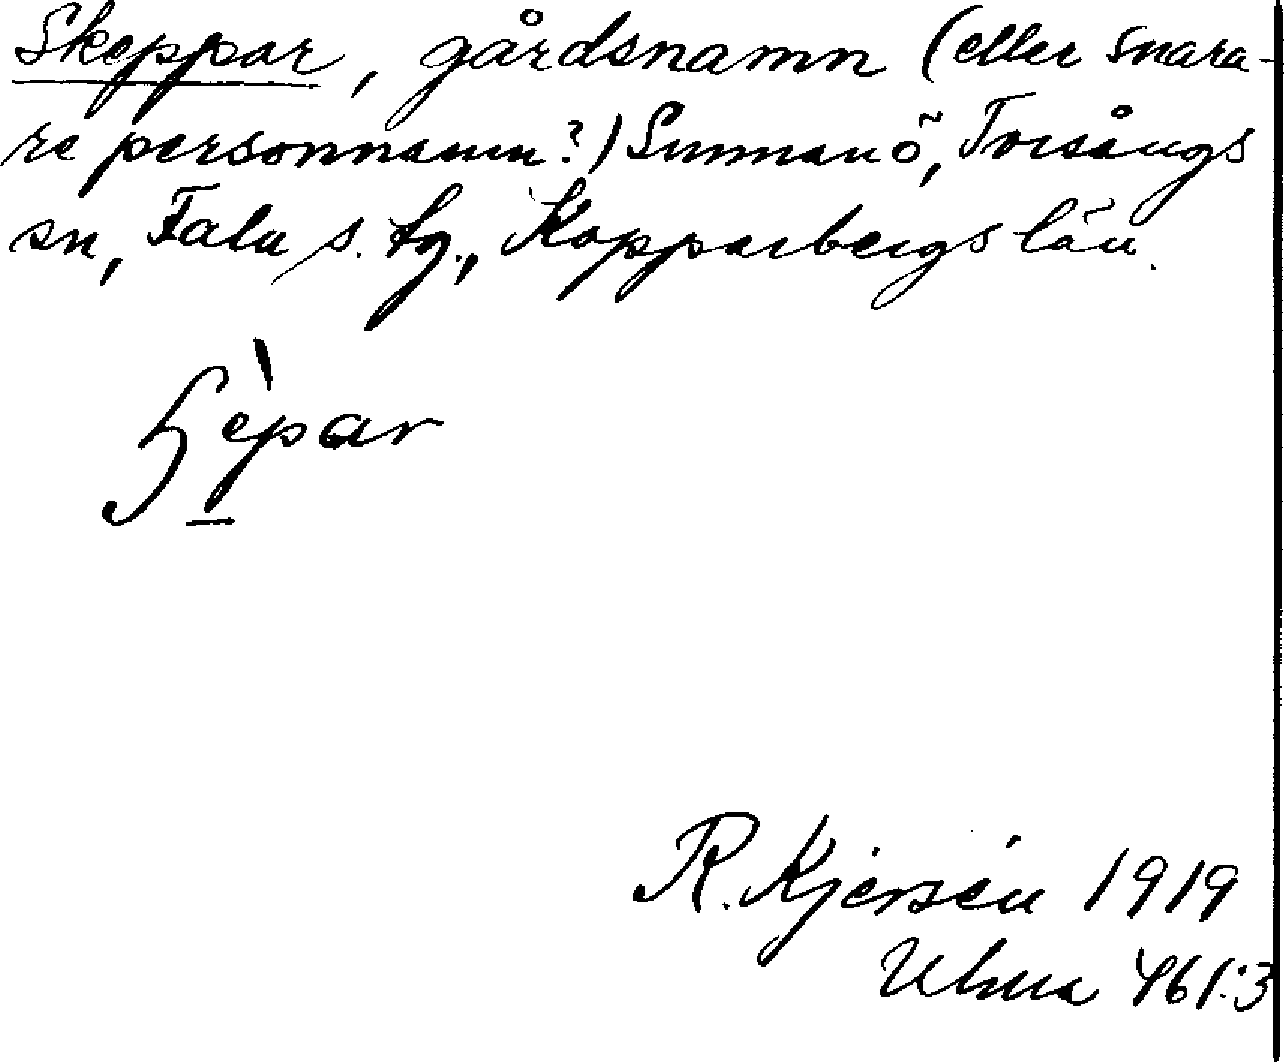 Skeppar, gårdsnamn (eller snara-
re personnamn?) Sunnanö, Torsångs
sn, Falu s. tg., Kopparbergs län.
ʃèpar
R. Kjersén 1919
Ulma 461:3